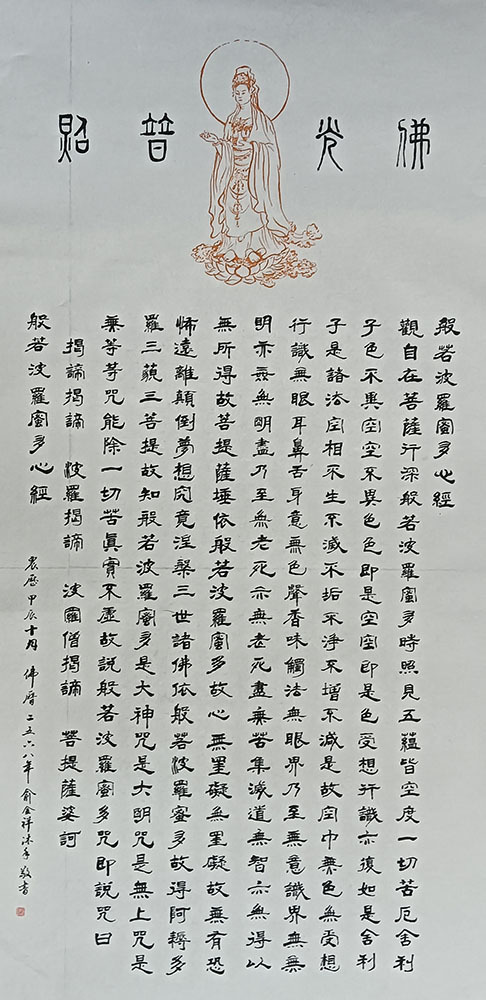 佛光普照
般若波羅蜜多心經
觀自在菩薩行深般若波羅蜜多時照見五蘊皆空度一切苦厄舍利
子色不異空空不異色色即是空空即是色受想行識亦復如是舍利
子是諸法空相不生不滅不垢不淨不增不減是故空中無色無受想
行識無眼耳鼻舌身意無色聲香味觸法無眼界乃至無意識界無無
明亦無無明盡乃至無老死亦無老死盡無苦集滅道無智亦無得以
無所得故菩提薩埵依般若波羅蜜多故心無罣礙無罣礙故無有恐
怖遠離顛倒夢想究竟涅槃三世諸佛依般若波羅蜜多故得阿耨多
羅三藐三菩提故知般若波羅蜜多是大神咒是大明咒是無上咒是
無等等咒能除一切苦眞實不虛故說般若波羅蜜多咒即說咒曰
揭諦揭諦 波羅揭諦 波羅僧揭諦 菩提薩婆訶
般若波羅蜜多心經
農曆甲辰十月 佛曆二五六八年俞金祥沐手敬書